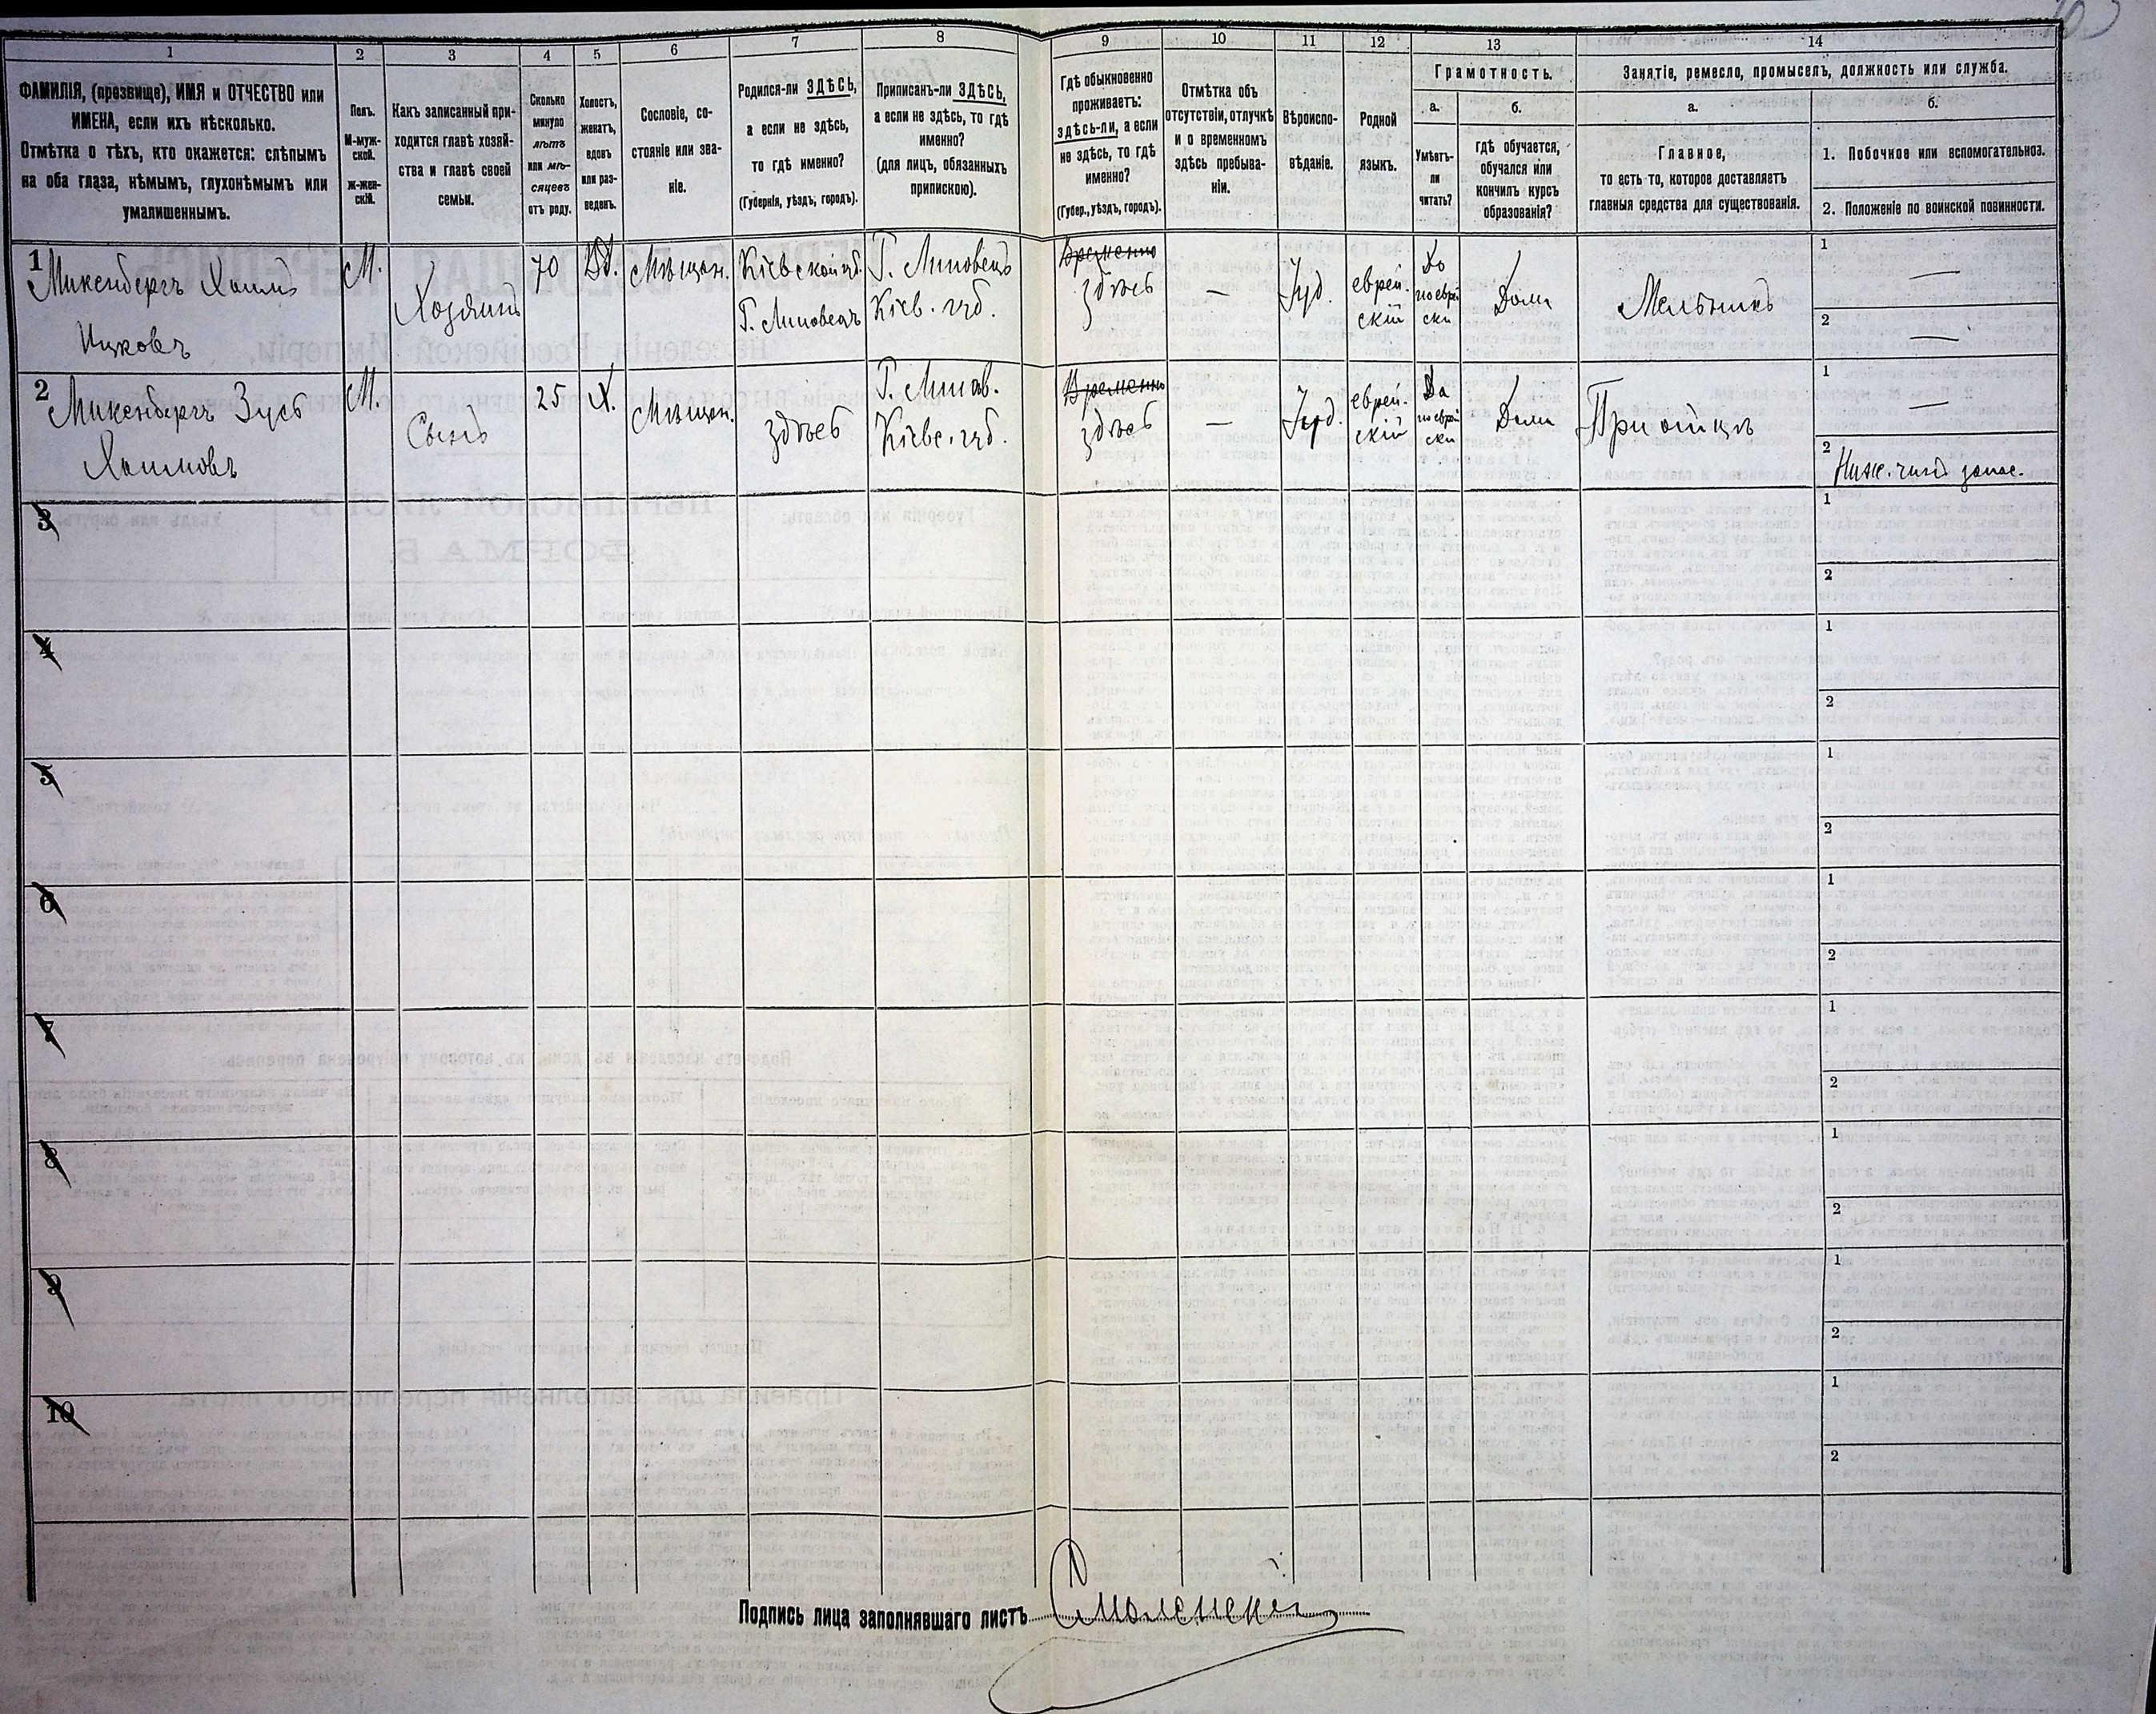 1 2 3 4 5 6 7 8 9 10 11 12 13 14
ФАМИЛІЯ, (прозвище), ИМЯ и ОТЧЕСТВО или
ИМЕНА, если ихъ нѣсколько.
Отмѣтка о тѣхъ, кто окажется: слѣпымъ
на оба глаза, нѣмымъ, глухонѣмымъ или
умалишеннымъ.
Полъ.
М-муж-
ской.
Ж-жен-
скій.
Какъ записанный при-
ходится главѣ хозяй-
ства и главѣ своей
семьи.
Сколько
минуло
лѣтъ
или мѣ-
сяцевъ
отъ роду.
Холостъ,
женатъ,
вдовъ
или раз-
веденъ.
Сословіе, со-
стояніе или зва-
ніе.
Родился-ли ЗДѢСЬ,
а если не здѣсь,
то гдѣ именно?
(Губернія, уѣздъ, городъ).
Приписанъ-ли ЗДѢСЬ,
а если не здѣсь, то гдѣ
именно?
(для лицъ, обязанныхъ
припискою).
Гдѣ обыкновенно
проживаетъ:
здѣсь-ли, а если
не здѣсь, то гдѣ
именно?
(Губер., уѣздъ, городъ).
Отмѣтка объ
отсутствіи, отлучкѣ
и о временномъ
здѣсь пребыва-
ніи.
Вѣроиспо-
вѣданіе.
Родной
языкъ.
Грамотность.
а.
Умѣетъ-
ли
читать?
б.
гдѣ обучается,
обучался или
кончилъ курсъ
образованія?
Занятіе, ремесло, промыселъ, должность или служба.
а.
Главное,
то есть то, которое доставляетъ
главныя средства для существованія.
б.
1. Побочное или вспомогательноз.
2. Положеніе по воинской повинности.
1
Микенбергъ Хаимъ
Ицковъ
М.
Хозяинъ
70
Вд.
Мѣщан.
Кіевской губ.
Г. Липовецъ
Г. Липовецъ
Кіев. губ.
Временно
здѣсь
—
Іуд.
еврей-
скій
Да
по еврей
ски
Дома
Мельникъ
1 —
2 —
2
Микенбергъ Зусь
Хаимовъ
М.
Сынъ
25
Х.
Мѣщан.
здѣсь
Г. Липов.
Кіевс. губ.
Временно
здѣсь
—
Іуд.
еврей-
скій
Да
по еврей
ски
Дома
При отцѣ
1 —
2 Ниж. чинъ запас.
3
1
2
4
1
2
5
1
2
6
1
2
7
1
2
8
1
2
9
1
2
10
1
2
Подпись лица заполнявшаго листъ